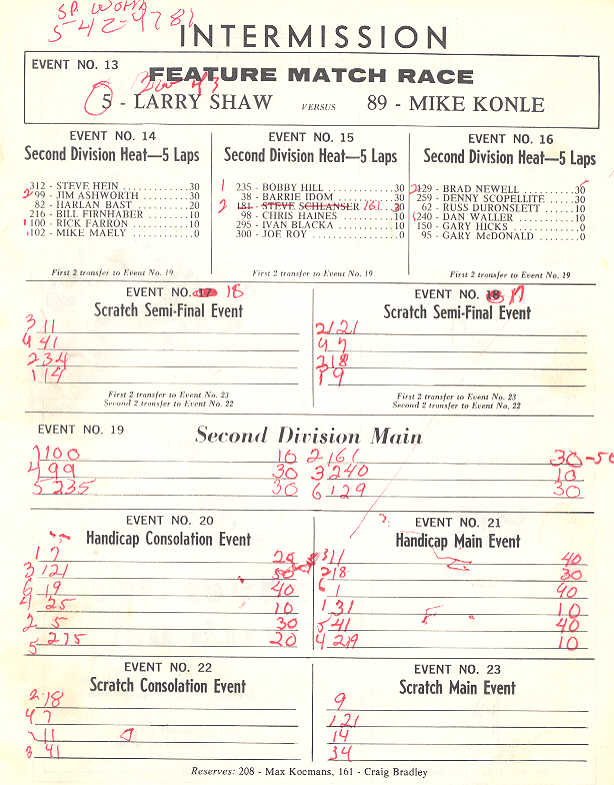 SP. WOMA
5-42-9781
INTERMISSION
EVENT NO. 13
FEATURE MATCH RACE
5 - LARRY SHAW VERSUS 89 - MIKE KONLE
EVENT NO. 14
Second Division Heat—5 Laps
312 - STEVE HEIN ............30
2 99 - JIM ASHWORTH ..........30
82 - HARLAN BAST ............20
216 - BILL FIRNHABER .........10
1 100 - RICK FARRON ...........10
102 - MIKE MAELY .............0
First 2 transfer to Event No. 19
EVENT NO. 15
Second Division Heat—5 Laps
1 235 - BOBBY HILL ............30
38 - BARRIE IDOM ............30
2 181 - STEVE SCHLANSER 161 .30
98 - CHRIS HAINES ............10
295 - IVAN BLACKA ............10
300 - JOE ROY .................0
First 2 transfer to Event No. 19
EVENT NO. 16
Second Division Heat—5 Laps
2 129 - BRAD NEWELL ..........30
259 - DENNY SCOPELLITE .....30
62 - RUSS DURONSLETT .......10
1 240 - DAN WALLER ............10
150 - GARY HICKS ..............0
95 - GARY McDONALD ..........0
First 2 transfer to Event No. 19
EVENT NO. 17 18
Scratch Semi-Final Event
3 11
4 41
2 34
1 14
First 2 transfer to Event No. 23
Second 2 transfer to Event No. 22
EVENT NO. 18 17
Scratch Semi-Final Event
2 121
4 7
3 18
1 9
First 2 transfer to Event No. 23
Second 2 transfer to Event No. 22
EVENT NO. 19
Second Division Main
1 100 10 2 161 30-50
4 99 30 3 240 10
5 235 30 6 129 30
EVENT NO. 20
Handicap Consolation Event
1 7 20
3 121 50
6 19 40
4 25 10
2 5 30
5 275 20
EVENT NO. 21
Handicap Main Event
3 11 40
2 18 30
6 1 40
1 31 10
5 41 40
4 29 10
EVENT NO. 22
Scratch Consolation Event
2 18
4 7
1 11
3 41
EVENT NO. 23
Scratch Main Event
9
121
14
34
Reserves: 208 - Max Kocmans, 161 - Craig Bradley